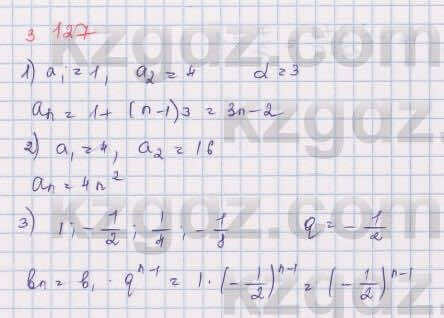 3 127
1) a₁ = 1, a₂ = 4 d = 3
aₙ = 1 + (n-1)3 = 3n-2
2) a₁ = 4, a₂ = 16
aₙ = 4n²
3) 1; -1/2; 1/4; -1/8 q = -1/2
bₙ = b₁ · qⁿ⁻¹ = 1 · (-1/2)ⁿ⁻¹ = (-1/2)ⁿ⁻¹
kzgdz.com